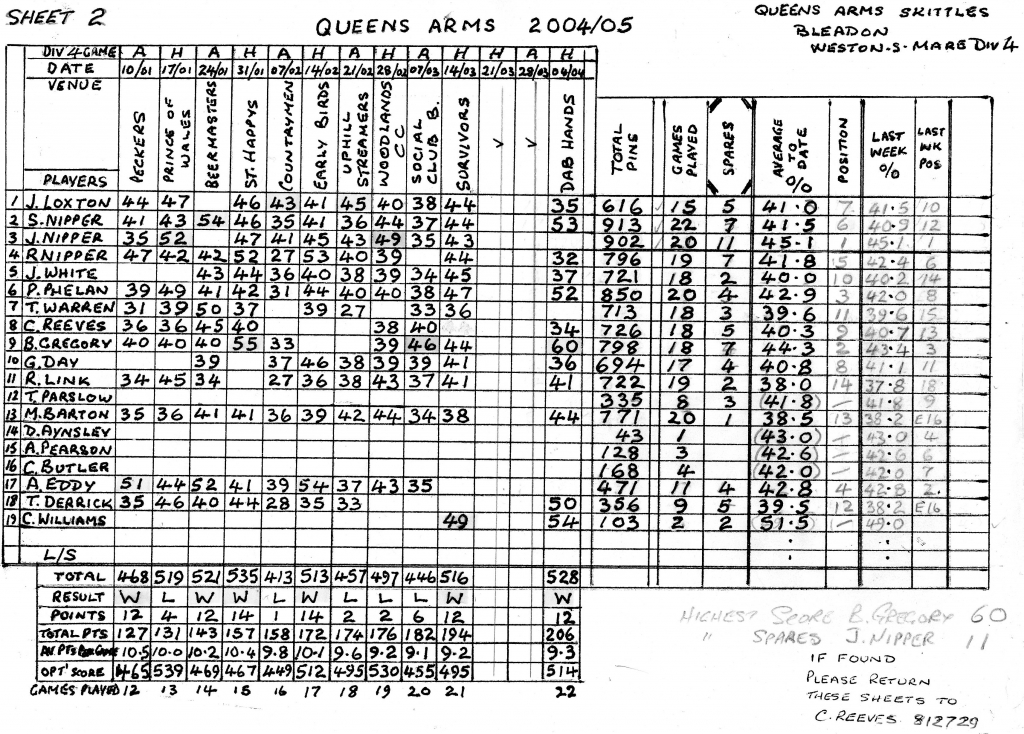 SHEET 2
QUEENS ARMS 2004/05
QUEENS ARMS SKITTLES
BLEADON
WESTON-S-MARE DIV 4
DIV 4 GAME A H A H A H A H A H H A H
DATE 10/01 17/01 24/01 31/01 07/02 14/02 21/02 28/02 07/03 14/03 21/03 28/03 04/04
VENUE PECKERS PRINCE OF WALES BEERMASTERS ST. HAPPYS COUNTRYMEN EARLY BIRDS UPHILL STREAMERS WOODLANDS C.C SOCIAL CLUB B. SURVIVORS V V DAB HANDS TOTAL PINS GAMES PLAYED SPARES AVERAGE TO DATE % POSITION LAST WEEK % LAST WK POS
PLAYERS
1 J. LOXTON 44 47 46 43 41 45 40 38 44 35 616 15 5 41.0 7 41.5 10
2 S. NIPPER 41 43 54 46 35 41 36 44 37 44 53 913 22 7 41.5 6 40.9 12
3 J. NIPPER 35 52 47 41 45 43 49 35 43 902 20 11 45.1 1 45.1 1
4 R. NIPPER 47 42 42 52 27 53 40 39 44 32 796 19 7 41.8 5 42.4 6
5 J. WHITE 43 44 36 40 38 39 34 45 37 721 18 2 40.0 10 40.2 14
6 P. PHELAN 39 49 41 42 31 44 40 40 38 47 52 850 20 4 42.9 3 42.0 8
7 T. WARREN 31 39 50 37 39 27 33 36 713 18 3 39.6 11 39.6 15
8 C. REEVES 36 36 45 40 38 40 34 726 18 5 40.3 9 40.7 13
9 B. GREGORY 40 40 40 55 33 39 46 44 60 798 18 7 44.3 2 43.4 3
10 G. DAY 39 37 46 38 39 39 41 36 694 17 4 40.8 8 41.1 11
11 R. LINK 34 45 34 27 36 38 43 37 41 41 722 19 2 38.0 14 37.8 18
12 T. PARSLOW 335 8 3 (41.8) – 41.8 9
13 M. BARTON 35 36 41 41 36 39 42 44 34 38 44 771 20 1 38.5 13 38.2 E16
14 D. AYNSLEY 43 1 (43.0) – 43.0 4
15 A. PEARSON 128 3 (42.6) – 42.6 6
16 C. BUTLER 168 4 (42.0) – 42.0 7
17 A. EDDY 51 44 52 41 39 54 37 43 35 471 11 4 42.8 4 42.8 2.
18 T. DERRICK 35 46 40 44 28 35 33 50 356 9 5 39.5 12 38.2 E16
19 C. WILLIAMS 49 54 103 2 2 51.5 – 49.0
L/S
TOTAL 468 519 521 535 413 513 457 497 446 516 528
RESULT W L W W L W L L L W W
POINTS 12 4 12 14 1 14 2 2 6 12 12
TOTAL PTS 127 131 143 157 158 172 174 176 182 194 206
AV. PTS PER GAME 10.5 10.0 10.2 10.4 9.8 10.1 9.6 9.2 9.1 9.2 9.3
OPT' SCORE 465 539 469 467 449 512 495 530 455 495 514
GAMES PLAYED 12 13 14 15 16 17 18 19 20 21 22
HIGHEST SCORE B. GREGORY 60
" SPARES J. NIPPER 11
IF FOUND
PLEASE RETURN
THESE SHEETS TO
C. REEVES 812729